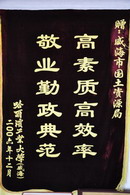 赠：威海市国土资源局
高素质高效率
敬业勤政典范
哈尔滨工业大学（威海）
二00六年十二月